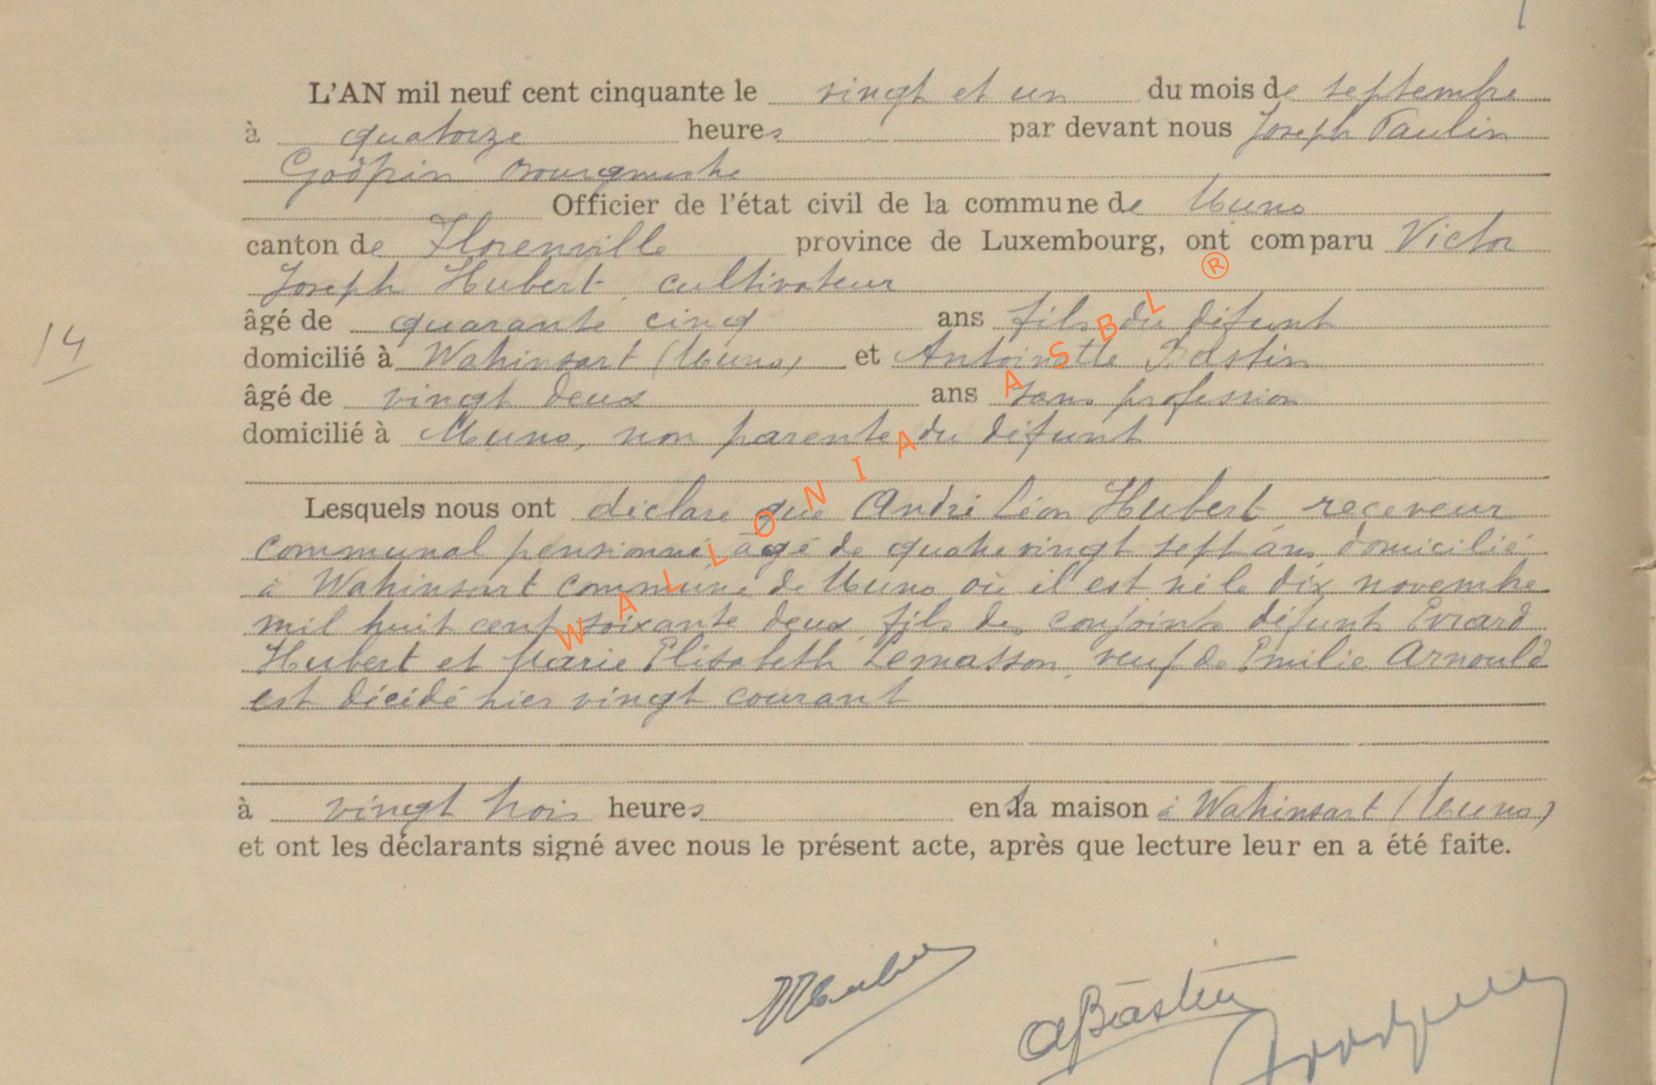 L'AN mil neuf cent cinquante le vingt et un du mois de septembre
à quatorze heures par devant nous Joseph Paulin
Godfrin Bourgmestre
Officier de l'état civil de la commune de Muno
canton de Florenville province de Luxembourg, ont comparu Victor
Joseph Hubert, cultivateur
âgé de quarante cinq ans fils du défunt
14
domicilié à Wahinsart (Muno) et Antoinette Bastin
âgé de vingt deux ans sans profession
domicilié à Muno, non parente du défunt
Lesquels nous ont déclaré que André Léon Hubert, receveur
communal pensionné âgé de quatre vingt sept ans domicilié
à Wahinsart commune de Muno où il est né le dix novembre
mil huit cent soixante deux, fils des conjoints défunts Evrard
Hubert et Marie Elisabeth Lemasson, veuf de Emilie Arnould
est décédé hier vingt courant
à vingt trois heures en sa maison à Wahinsart (Muno)
et ont les déclarants signé avec nous le présent acte, après que lecture leur en a été faite.
VHubert
ABastin
WALLONIA ASBL ®